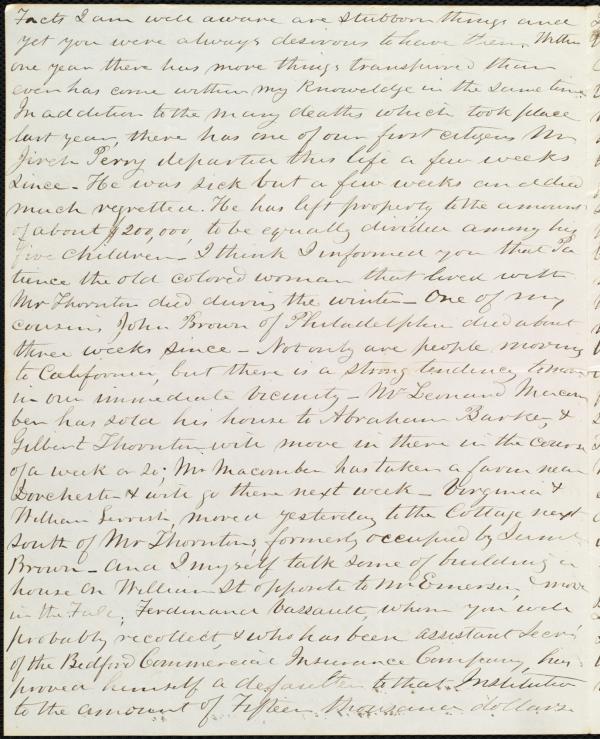 Facts I am well aware are stubborn things and
yet you were always desirous to have them. Within
one year there has more things transpired than
ever has come within my knowledge in the same time
In addition to the many deaths which took place
last year, there has one of our first citizens Mr
Jireh Perry departed this life a few weeks
since - He was sick but a few weeks and died
much regretted. He has left property to the amount
of about $200,000, to be equally divided among his
five children - I think I informed you that Pa
tience the old colored woman that lived with
Mr Thornton died during the winter - One of my
cousins, John Brown of Philadelphia died about
three weeks since - Not only are people moving
to California, but there is a strong tendency to move
in our immediate vicinity - Mr Leonard Macom
ber has sold his house to Abraham Barker, &
Gilbert Thornton will move in there in the course
of a week or so; Mr Macomber has taken a farm near
Dorchester & will go there next week - Virginia &
William Gerrish, moved yesterday to the Cottage next
south of Mr Thorntons, formerly occupied by Saml
Brown - and I myself talk some of building a
house on William St opposite to Mr Emerson, & move
in the Fall; Ferdinand Vassault, whom you will
probably recollect, & who has been assistant Secry
of the Bedford Commercial Insurance Company, has
proved himself a defaulter to that Institution
to the amount of Fifteen thousand dollars